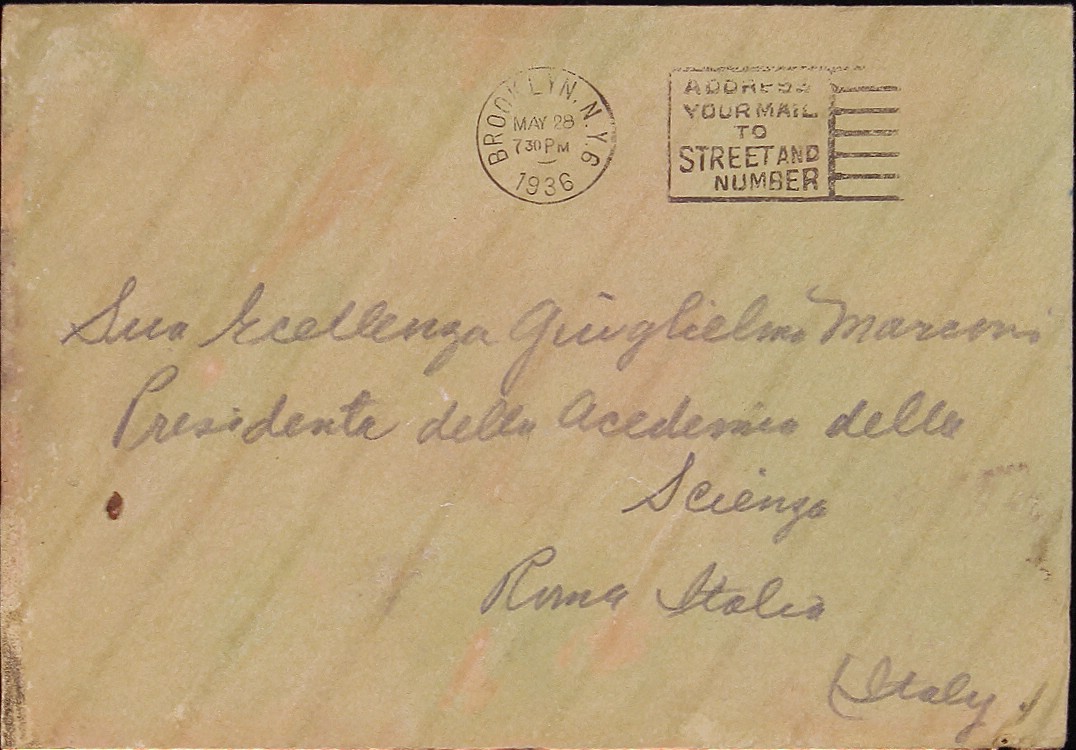 BROOKLYN, N.Y. 6
MAY 28
7 30 PM
1936
ADDRESS
YOUR MAIL
TO
STREET AND
NUMBER
Sua Ecellenza Giuglielmo Marconi
Presidenta della Acedemia della
Scienza
Roma Italia
(Italy.